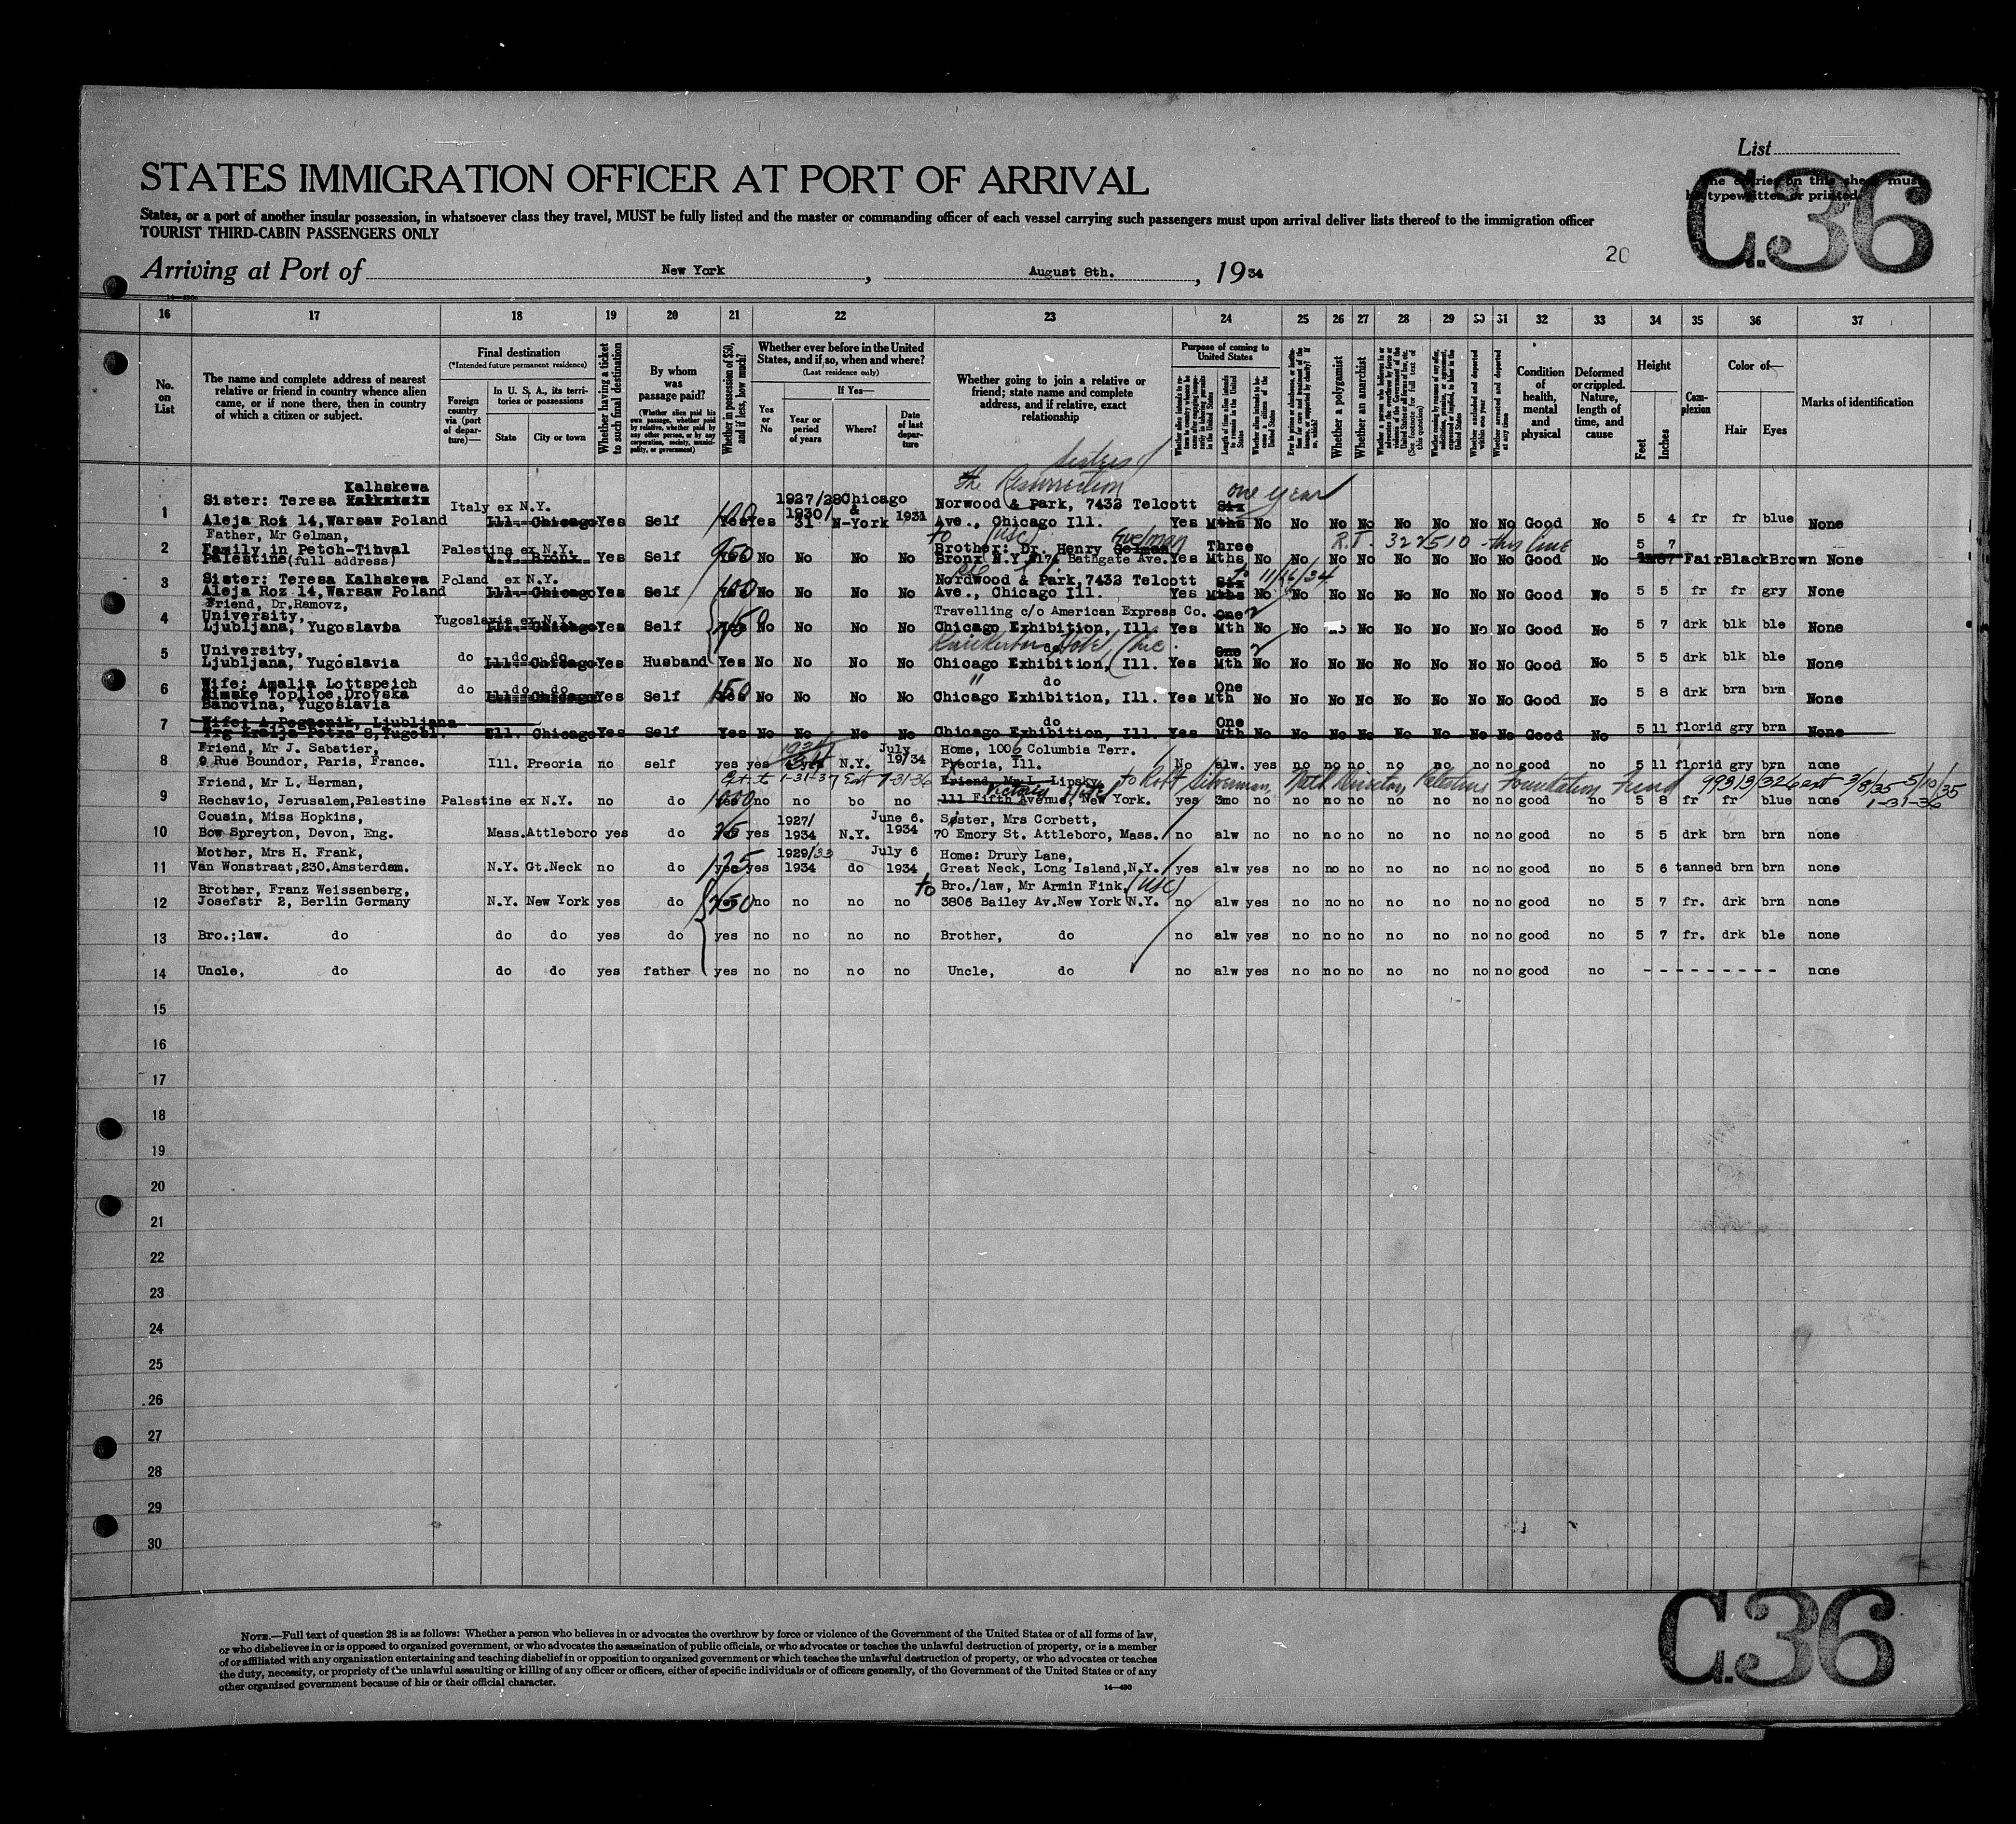 List
The entries on this sheet must
be typewritten or printed
C.36
STATES IMMIGRATION OFFICER AT PORT OF ARRIVAL
States, or a port of another insular possession, in whatsoever class they travel, MUST be fully listed and the master or commanding officer of each vessel carrying such passengers must upon arrival deliver lists thereof to the immigration officer
TOURIST THIRD-CABIN PASSENGERS ONLY
20
Arriving at Port of New York, August 8th., 1934
14—430
16 17 18 19 20 21 22 23 24 25 26 27 28 29 30 31 32 33 34 35 36 37
No. on List
The name and complete address of nearest relative or friend in country whence alien came, or if none there, then in country of which a citizen or subject.
Final destination
(*Intended future permanent residence)
Foreign country via (port of departure)—
In U. S. A., its territories or possessions
State
City or town
Whether having a ticket to such final destination
By whom was passage paid?
(Whether alien paid his own passage, whether paid by relative, whether paid by any other person, or by any corporation, society, municipality, or government)
Whether in possession of $50, and if less, how much?
Whether ever before in the United States, and if so, when and where?
(Last residence only)
Yes or No
If Yes—
Year or period of years
Where?
Date of last departure
Whether going to join a relative or friend; state name and complete address, and if relative, exact relationship
Purpose of coming to United States
Length of time alien intends to remain in the United States
Whether alien intends to become a citizen of the United States
Whether a polygamist
Whether an anarchist
(See footnote for full text of this question)
Whether arrested and deported at any time
Condition of health, mental and physical
Deformed or crippled. Nature, length of time, and cause
Height
Feet
Inches
Complexion
Color of—
Hair
Eyes
Marks of identification
Sisters of
the Resurrection
Kalhskewa 1927/28 Chicago one year
1 Sister: Teresa Italy ex N.Y. 1930/ & Norwood & Park, 7432 Telcott Six
Aleja Roz 14, Warsaw Poland Ill. Chicago Yes Self 100 Yes Yes 31 N-York 1931 Ave., Chicago Ill. Yes Mths No No No No No No No No Good No 5 4 fr fr blue None
Father, Mr Gelman, to (USC) Guelman R.T. 322510 - this line
2 Family in Petch-Tihval Palestine ex N.Y. Brother: Dr. Henry Gelman Three 5 7
Palestine (full address) N.Y. Bronx Yes Self Yes No No No No Bronx N.Y. Bathgate Ave. Yes Mths No No No No No No No No Good No Fair Black Brown None
3 Sister: Teresa Kalhskewa Poland ex N.Y. Nordwood & Park, 7432 Telcott Six to 11/16/34
Aleja Roz 14, Warsaw Poland Ill. Chicago Yes Self 100 No No No No Ave., Chicago Ill. Yes Mths No No No No No No No No Good No 5 5 fr fr gry None
Friend, Dr. Ramovz,
4 University, Yugoslavia ex N.Y. Travelling c/o American Express Co. One 2
Ljubljana, Yugoslavia Ill. Chicago Yes Self 750 Yes No No No No Chicago Exhibition, Ill. Yes Mth No No No No No No No No Good No 5 7 drk blk ble None
5 University, do do do Hotel One 2
Ljubljana, Yugoslavia Ill. Chicago Yes Husband Yes No No No No Chicago Exhibition, Ill. Yes Mth No No No No No No No No Good No 5 5 drk blk ble None
Wife: Amalia Lottspeich " do
6 Rimske Toplice, Drovska do do do One
Banovina, Yugoslavia Ill. Chicago Yes Self 150 Yes No No No No Chicago Exhibition, Ill. Yes Mth No No No No No No No No Good No 5 8 drk brn brn None
7 Wife: A. Pogacnik, Ljubljana do One
Trg Kralja Petra 8, Yugosl. Ill. Chicago Yes Self Yes No No No No Chicago Exhibition, Ill. Yes Mth No No No No No No No No Good No 5 11 florid gry brn None
Friend, Mr J. Sabatier, 1934 July Home, 1006 Columbia Terr.
8 9 Rue Boundor, Paris, France. Ill. Preoria no self yes yes N.Y. 19/34 Pyeoria, Ill. No alw. yes no no no no no no no good no 5 11 florid gry brn none
Friend, Mr L. Herman, Ext. 1-31-37 Ext 7-31-36 Friend, Mr L. Lipsky, to Silverman, Natl Director, Palestine Foundation Fund 99313/326 ext 3/8/35 - 5/10/35
Victoria Hotel
9 Rechavio, Jerusalem, Palestine Palestine ex N.Y. no do 1000 yes no no bo no 111 Fifth Avenue, New York. yes 3mo no no no no no no no no good no 5 8 fr fr blue none 1-31-36
Cousin, Miss Hopkins, 1927/ June 6. Sister, Mrs Corbett,
10 Bow Spreyton, Devon, Eng. Mass. Attleboro yes do yes 1934 N.Y. 1934 70 Emory St. Attleboro, Mass. no alw no no no no no no no no good no 5 5 drk brn brn none
Mother, Mrs H. Frank, 1929/33 July 6 Home: Drury Lane,
11 Van Wonstraat, 230. Amsterdam. N.Y. Gt. Neck no do 125 yes yes 1934 do 1934 Great Neck, Long Island, N.Y. yes alw yes no no no no no no no good no 5 6 tanned brn brn none
Brother, Franz Weissenberg, to Bro./law, Mr Armin Fink. (USC)
12 Josefstr 2, Berlin Germany N.Y. New York yes do 250 no no no no 3806 Bailey Av. New York N.Y. no alw yes no no no no no no no good no 5 7 fr. drk brn none
13 Bro.;law. do do do yes do yes no no no no Brother, do no alw yes no no no no no no no good no 5 7 fr. drk ble none
14 Uncle, do do do yes father yes no no no no Uncle, do no alw yes no no no no no no no good no - - - - - - - - - none
15
16
17
18
19
20
21
22
23
24
25
26
27
28
29
30
C.36
NOTE.—Full text of question 28 is as follows: Whether a person who believes in or advocates the overthrow by force or violence of the Government of the United States or of all forms of law,
or who disbelieves in or is opposed to organized government, or who advocates the assassination of public officials, or who advocates or teaches the unlawful destruction of property, or is a member
of or affiliated with any organization entertaining and teaching disbelief in or opposition to organized government or which teaches the unlawful destruction of property, or who advocates or teaches
the duty, necessity, or propriety of the unlawful assaulting or killing of any officer or officers, either of specific individuals or of officers generally, of the Government of the United States or of any
other organized government because of his or their official character.
14—430